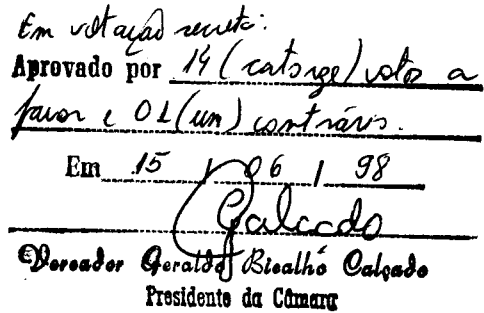 Em votação secreta:
Aprovado por 14 (catorze) votos a
favor e 01 (um) contrário.
Em 15 / 06 / 98
Calçado
Vereador Geraldo Bicalho Calçado
Presidente da Câmara